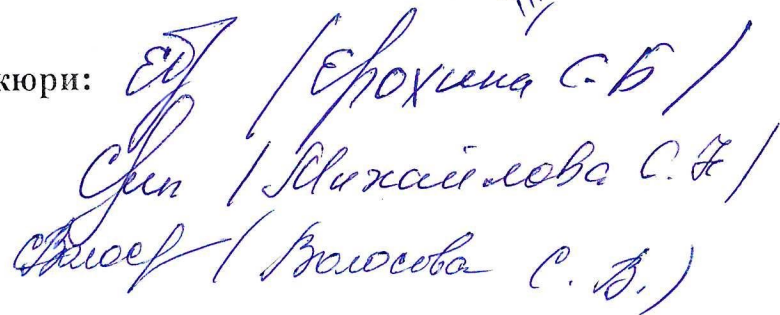 кюри: / Ерохина С.Б /
/ Михайлова С.Н /
/ Волосова С. В. )